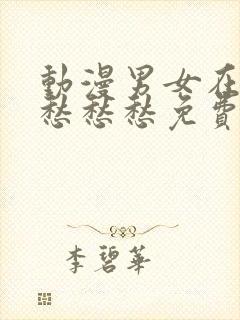 動漫男女在
愁愁愁免費
李碧華